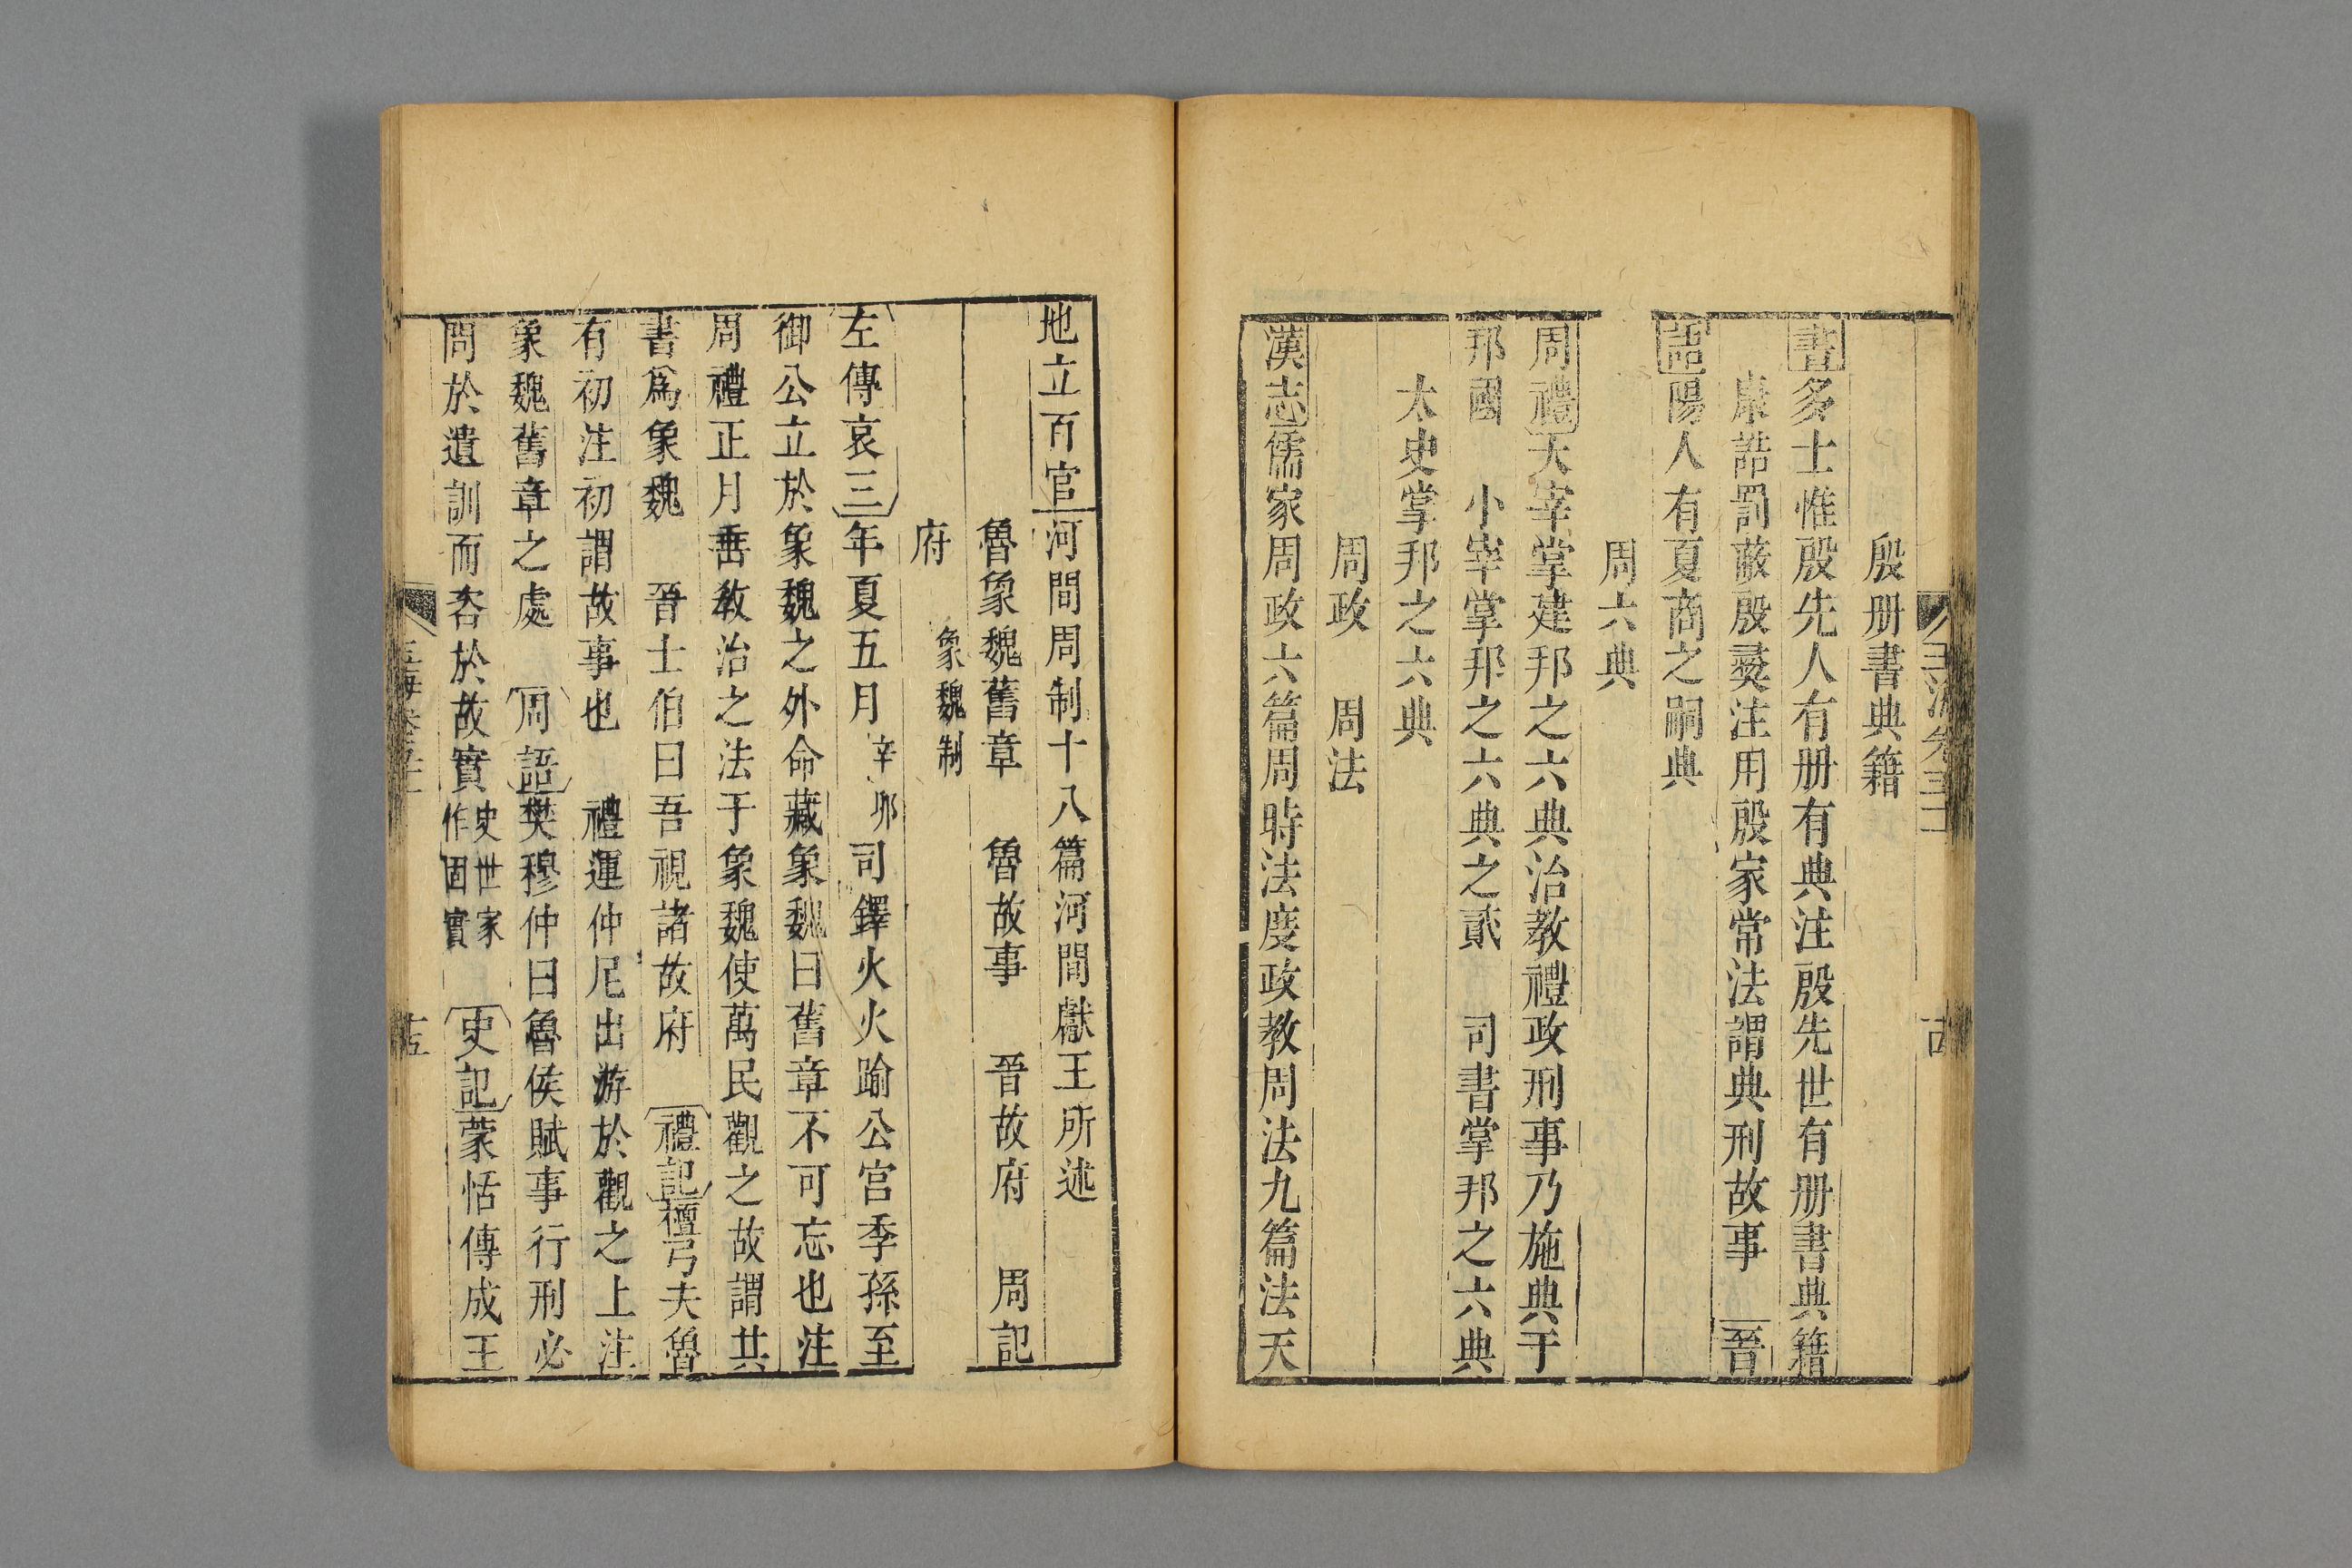 殷册書典籍
書多士惟殷先人有册有典注殷先世有册書典籍
康誥罰蔽殷彝注用殷家常法謂典刑故事　晉
語陽人有夏商之嗣典
周六典
周禮大宰掌建邦之六典治教禮政刑事乃施典于
邦國　小宰掌邦之六典之貳　司書掌邦之六典
太史掌邦之六典
周政　周法
漢志儒家周政六篇周時法度政教周法九篇法天
地立百官河間周制十八篇河間獻王所述
魯象魏舊章　魯故事　晉故府　周記
府　象魏制
左傳哀三年夏五月辛卯司鐸火火踰公宮季孫至
御公立於象魏之外命藏象魏曰舊章不可忘也注
周禮正月垂教治之法于象魏使萬民觀之故謂其
書爲象魏　晉士伯曰吾視諸故府　禮記檀弓夫魯
有初注初謂故事也　禮運仲尼出游於觀之上注
象魏舊章之處　周語樊穆仲曰魯侯賦事行刑必
問於遺訓而咨於故實史世家作固實　史記蒙恬傳成王